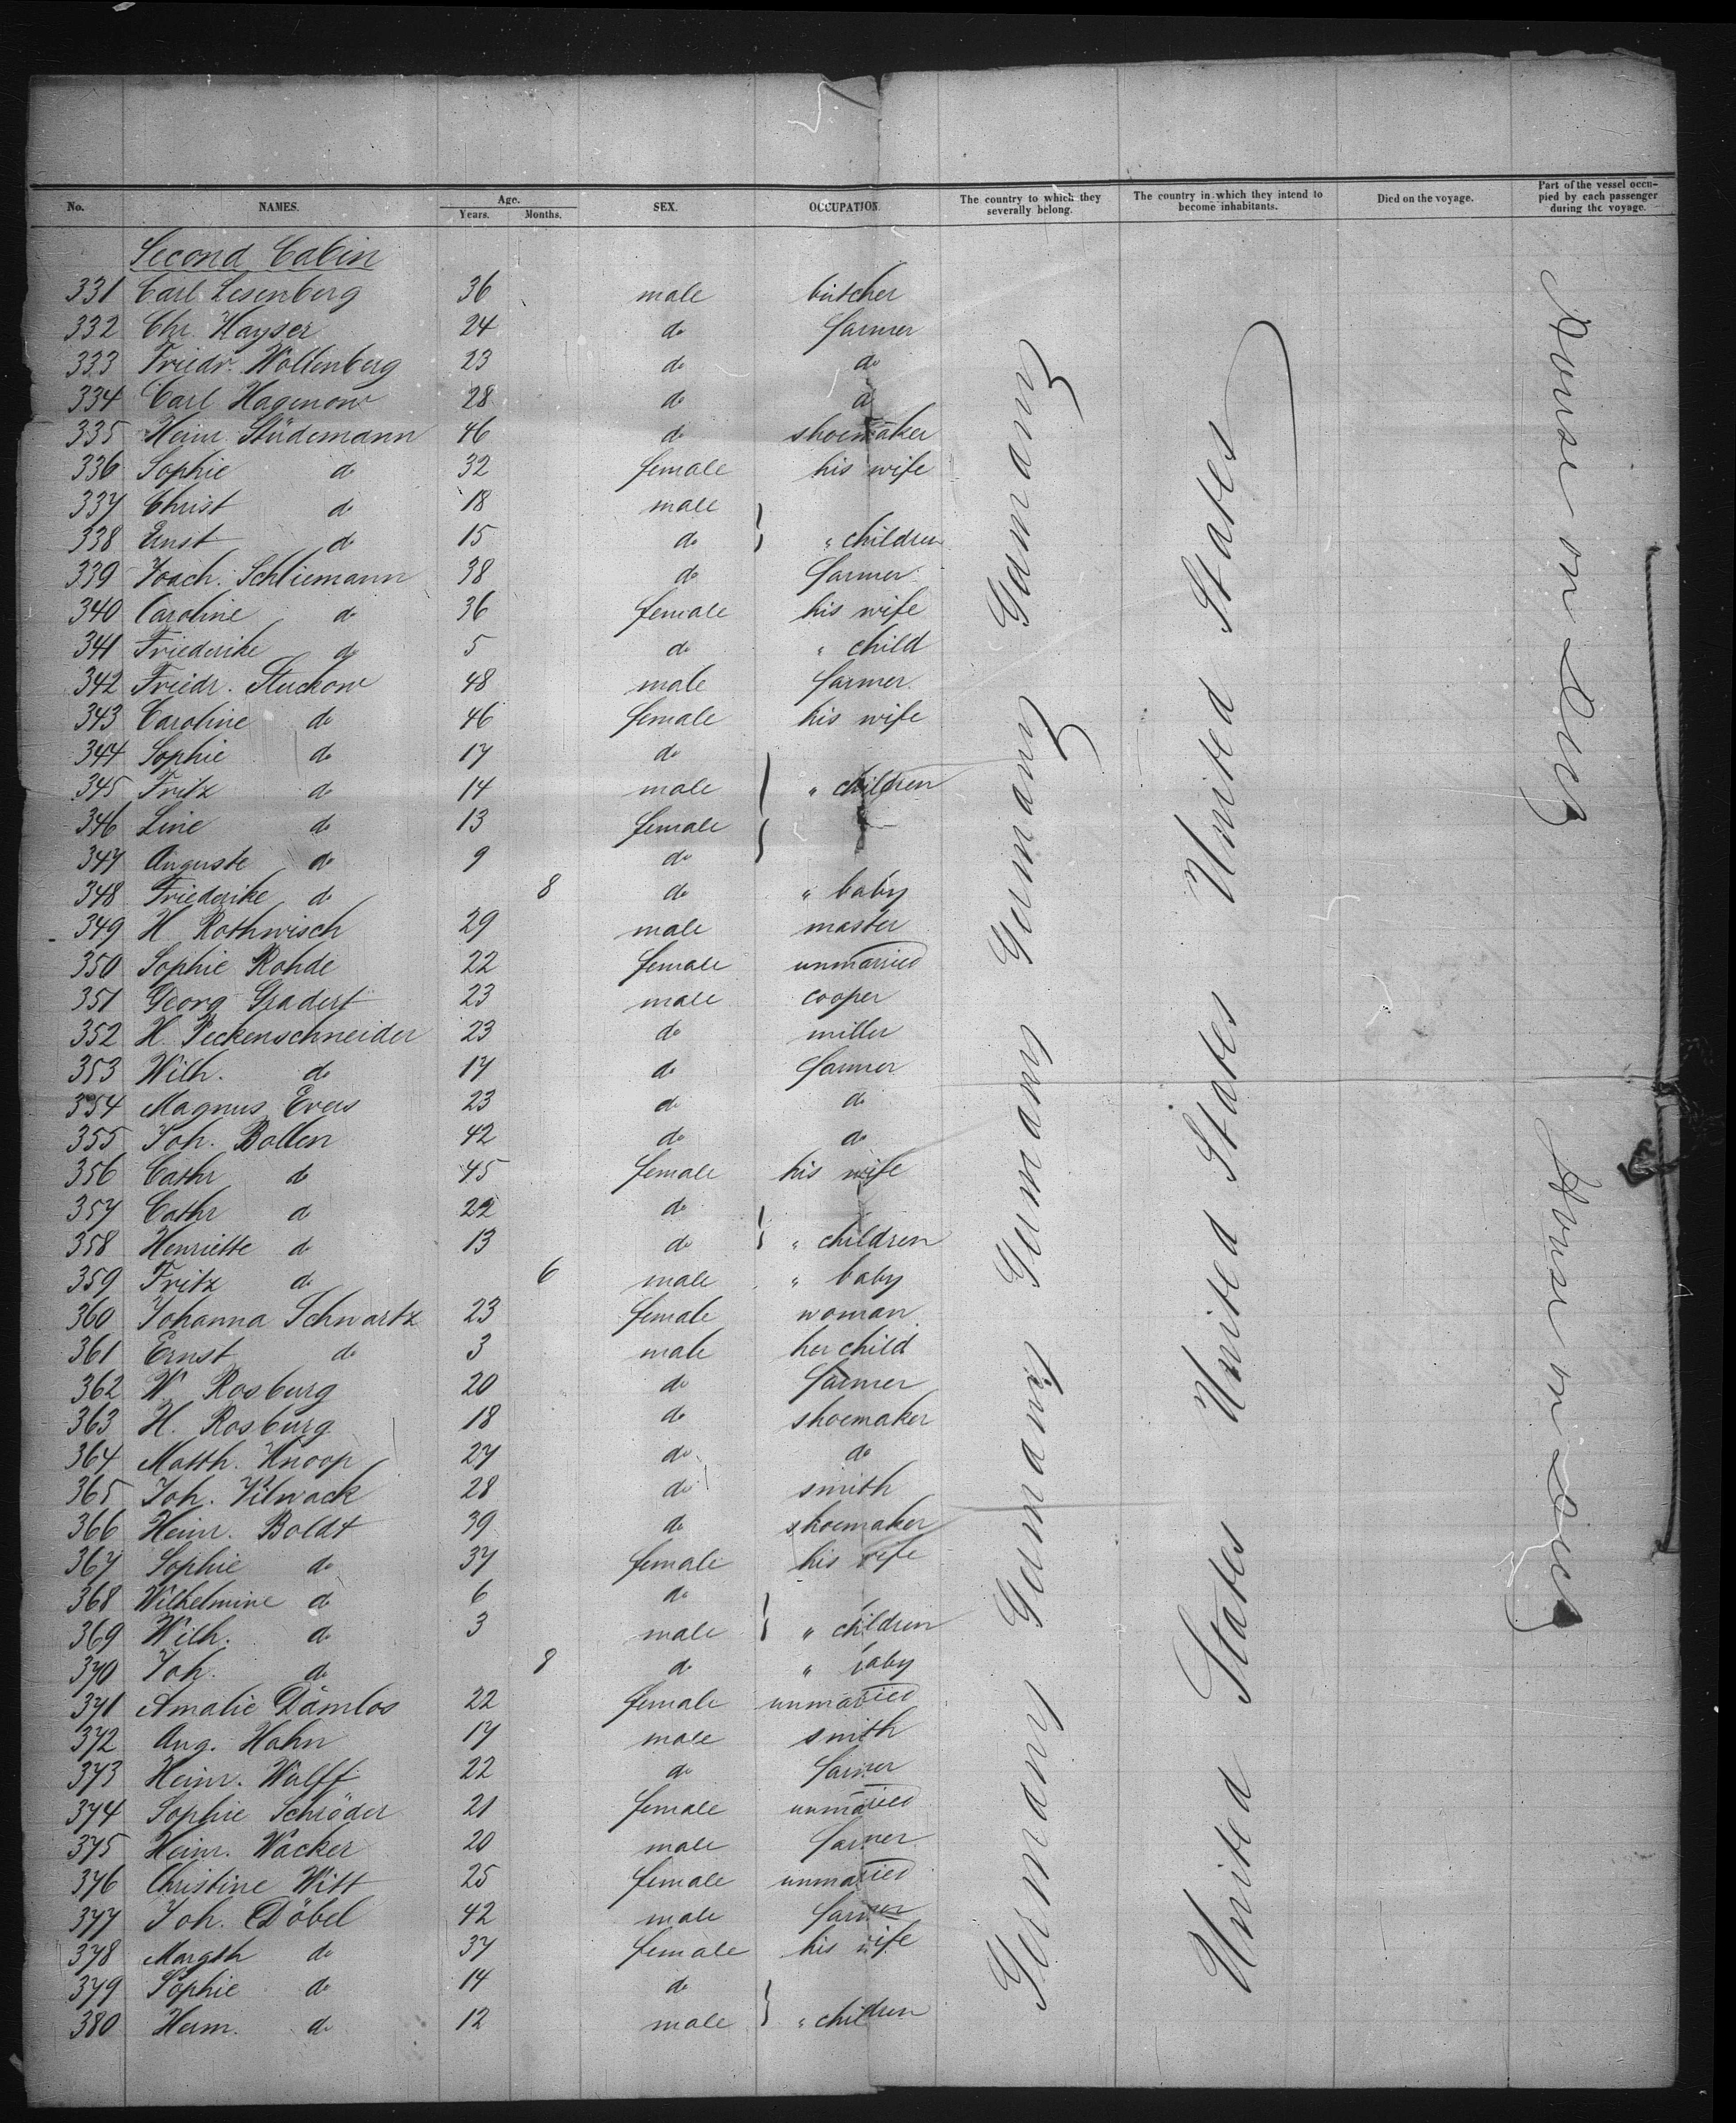 No. NAMES. Age. Years. Months. SEX. OCCUPATION. The country to which they severally belong. The country in which they intend to become inhabitants. Died on the voyage. Part of the vessel occupied by each passenger during the voyage.
Second Cabin
331 Carl Lesenberg 36 male butcher
332 Chr. Hayser 24 do farmer
333 Friedr. Wollenberg 23 do do
334 Carl Hagenow 28 do d
335 Heinr. Stüdemann 46 do shoemaker
336 Sophie do 32 female his wife
337 Christ do 18 male
338 Ernst do 15 do " children
339 Joach. Schliemann 38 do farmer
340 Caroline do 36 female his wife
341 Friederike do 5 do " child
342 Friedr. Stuckow 48 male farmer
343 Caroline do 46 female his wife
344 Sophie do 17 do
345 Fritz do 14 male " children
346 Line do 13 female
347 Auguste do 9 do
348 Friederike do 8 do " baby
349 H. Rothwisch 29 male master
350 Sophie Rohde 22 female unmarried
351 Georg Gradert 23 male cooper
352 H. Peckenschneider 23 do miller
353 Wilh. do 17 do farmer
354 Magnus Evers 23 do do
355 Joh. Bollen 42 do do
356 Cathr do 45 female his wife
357 Cathr do 22 do
358 Henriette do 13 do " children
359 Fritz do 6 male " baby
360 Johanna Schwartz 23 female woman
361 Ernst do 3 male her child
362 W. Rosburg 20 do farmer
363 H. Rosburg 18 do shoemaker
364 Matth. Knoop 27 do do
365 Joh. Vilwack 28 do smith
366 Heinr. Boldt 39 do shoemaker
367 Sophie do 37 female his wife
368 Wilhelmine do 6 do
369 Wilh. do 3 male " children
370 Joh. do 8 do " baby
371 Amalie Dämlos 22 female unmarried
372 Aug. Hahn 17 male smith
373 Heinr. Wulff 22 do farmer
374 Sophie Schröder 21 female unmarried
375 Heinr. Wacker 20 male farmer
376 Christine Witt 25 female unmarried
377 Joh. Döbel 42 male farmer
378 Margth do 37 female his wife
379 Sophie do 14 do
380 Herm. do 12 male " children
Germany Germany Germany Germany Germany
United States United States United States
House on Deck House on Deck